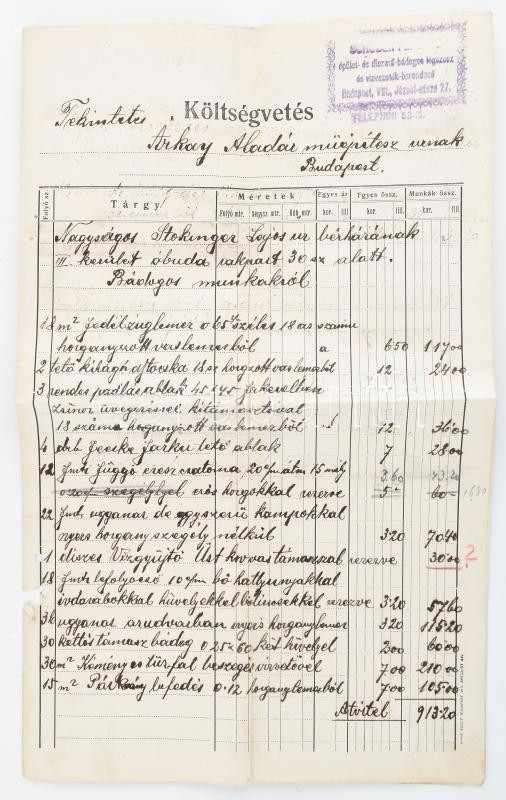 épület- és díszmű-bádogos légszesz
és vízvezeték-berendező
Budapest, VIII., József-utcza 27.
TELEPHON
Költségvetés
Tekintetes
Árkay Aladár műépítész urnak
Budapest.
Folyó sz. Tárgy Méretek Egyes ár Egyes össz. Munkák össz.
Folyó mtr. Négysz. mtr. Köb. mtr. kor. fill. kor. fill. kor. fill.
Nagyságos Stokinger Lajos ur bérházának
III kerület óbuda rakpart 30 sz alatt.
Bádogos munkákról
18 m² fedélzuglemez 0 65 széles 18 as számu
horganyzott vaslemezből a 6 50 117 00
2 tető kilágó ajtocska 18 sz horgzott vaslemezből 12 24 00
3 rendes padlás ablak 45 45
üvegezéssel kitámasztóval
18 számu horganyzott vaslemezből 12 36 00
4 drb fecske farku tető ablak 7 28 00
12 függő eresz csatorna, 20 átm 15 mély 3.60 43.20
szegélylyel erős horgokkal vezetve 5 60 1680
22 ugyanaz de egyszerü kampokkal
nyers horgany szegély nélkül 3 20 70 40
1 díszes Vízgyüjtő Üst kovvas támasszal vezetve 30 00 2
18 lefolyócső 10 bő hattyunyakkal
ívdarabokkal hüvelyekkel bilincsekkel vezetve 3 20 57 60
36 ugyanaz az udvarban nyers horganylemez 3 20 115 20
30 kettős támasz bádog 0 25 60 két hüvelyel 2 00 60 00
30 m² Kémény és tűzfal beszegés 7 00 210 00
15 m² Párkány befedés 0 12 horganylemezből 7 00 105 00
Átvitel 913 20